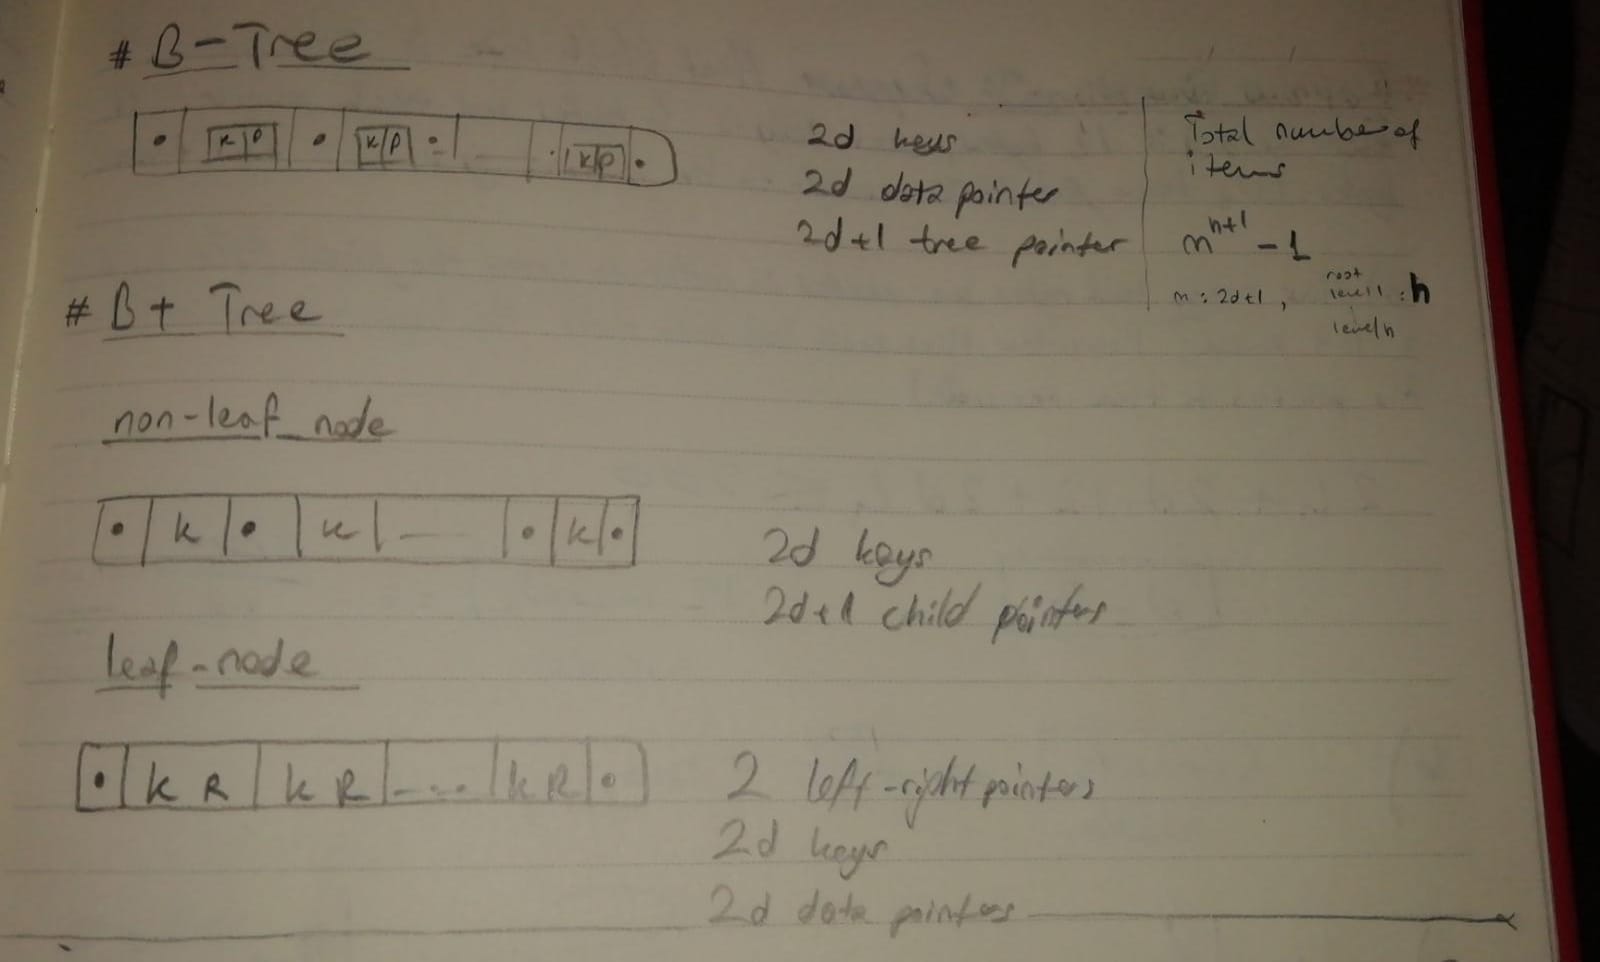 # B-Tree
• K P • K P • __ . K P •
2d keys
2d data pointer
2d+1 tree pointer
Total number of
items
m^h+1 - 1
m : 2d+1, root
level 1 : h
level h
# B+ Tree
non-leaf_node
• K • K __ • K •
2d keys
2d+1 child pointers
leaf-node
• K R K R --.. K R •
2 left-right pointers
2d keys
2d data pointers